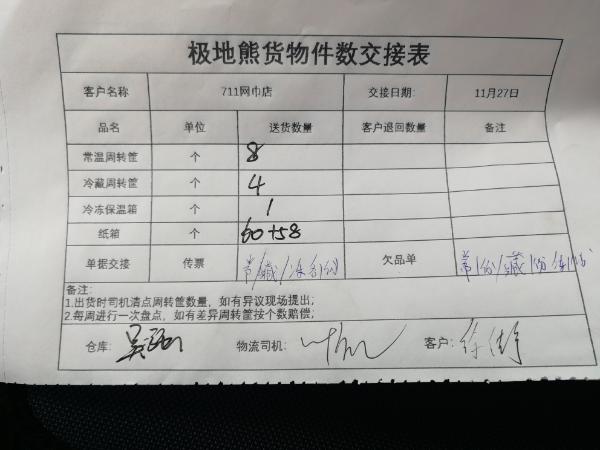 极地熊货物件数交接表
客户名称 711网巾店 交接日期: 11月27日
品名 单位 送货数量 客户退回数量 备注
常温周转筐 个 8
冷藏周转筐 个 4
冷冻保温箱 个 1
纸箱 个 60+58
单据交接 传票 常/藏/冻各1份 欠品单 常1份/藏1份
备注:
1.出货时司机清点周转筐数量，如有异议现场提出;
2.每周进行一次盘点，如有差异周转筐按个数赔偿;
仓库: 物流司机: 客户: